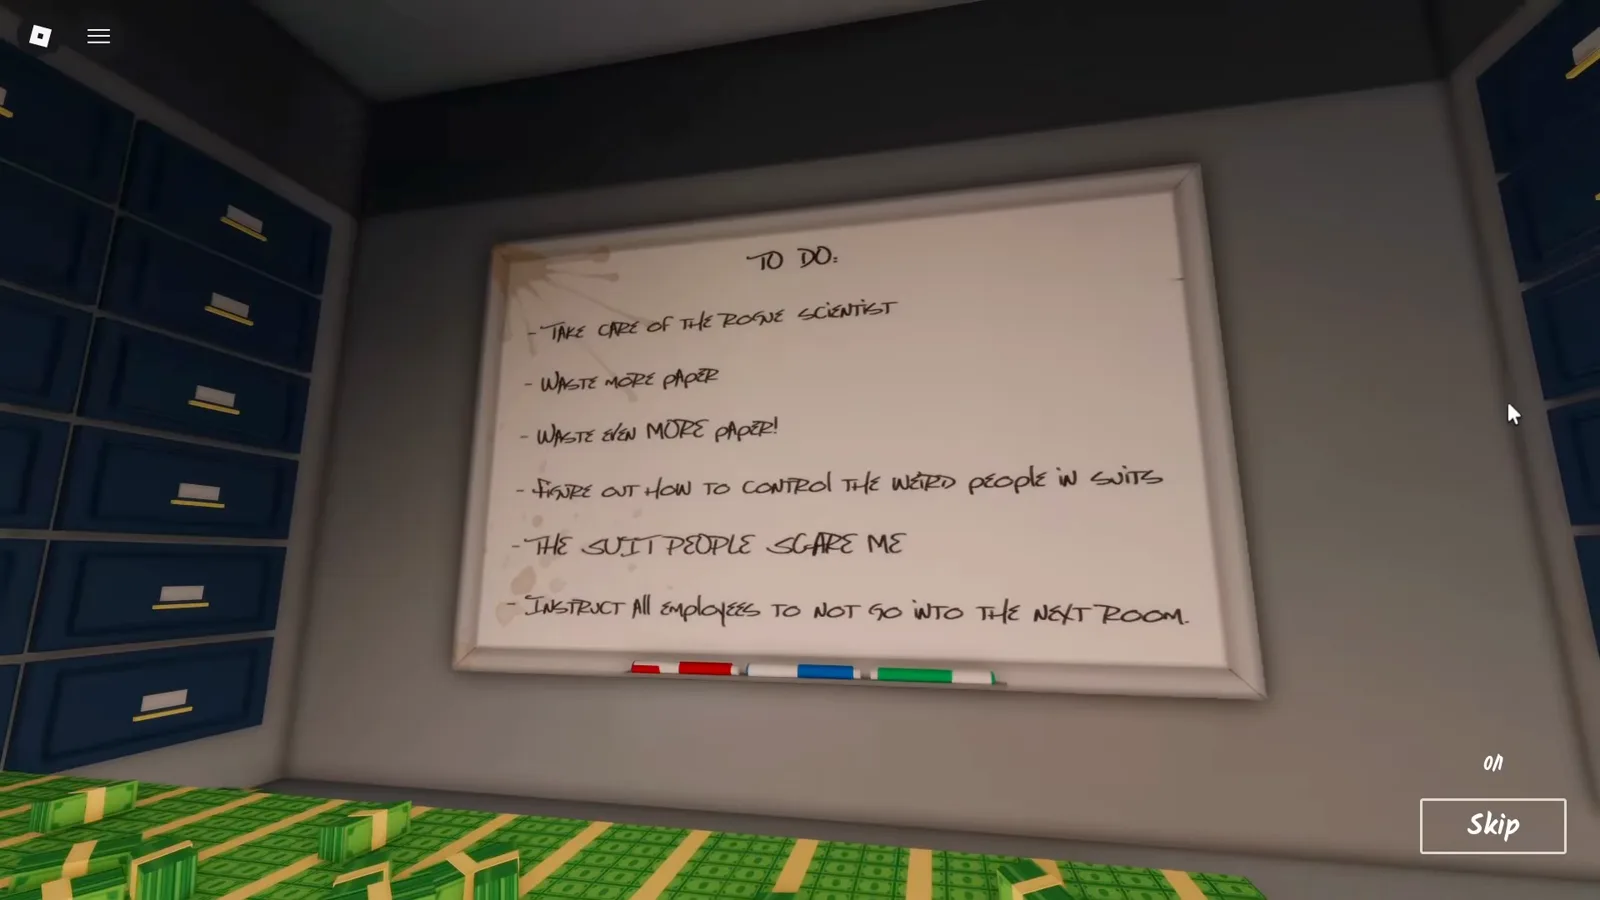 TO DO:
- TAKE CARE OF THE ROGUE SCIENTIST
- WASTE MORE PAPER
- WASTE EVEN MORE PAPER!
- FIGURE OUT HOW TO CONTROL THE WEIRD PEOPLE IN SUITS
- THE SUIT PEOPLE SCARE ME
- INSTRUCT All EMPlOYEES TO NOT GO INTO THE NEXT ROOM.
0/1
Skip